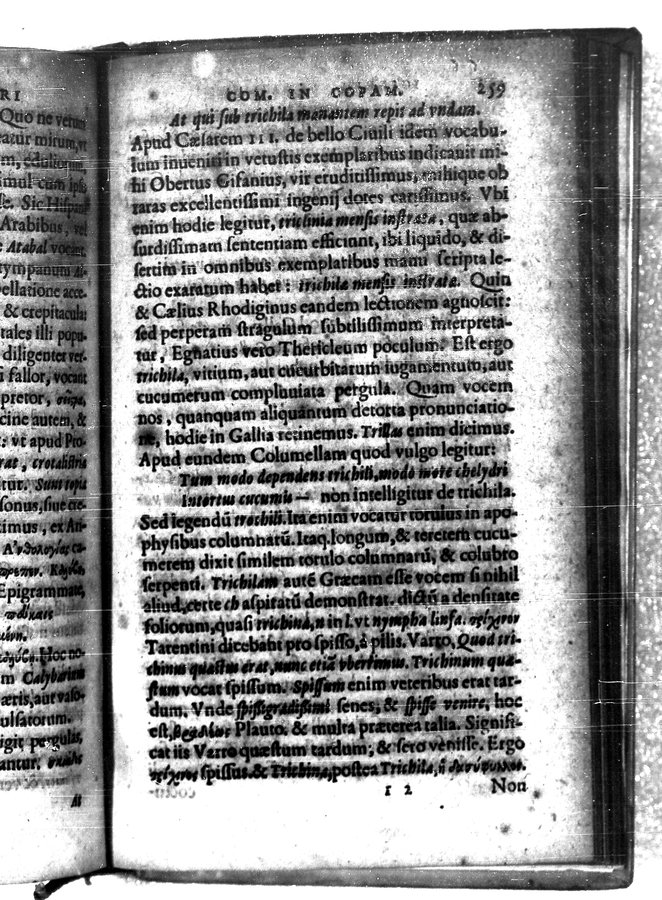 RI
Quo ne verum
eatur mirum, vt
m, eduliorum
imul cum ipsa
e. Sic Hispani
Arabibus, vel
e Atabal vocant
tympanum
pellatione acce-
& crepitacula
tales illi popu-
diligenter ver-
i fallor, vocant
pretor,
cine autem, &
: vt apud Pro-
rat, crotalistria
tur. Sunt topia
sonus, siue cie-
timus, ex An-
Epigrammate,
Hoc no-
m Calybarium
æris, aut valo-
ulsatorum.
igit pergulas,
antur.
At
COM. IN COPAM. 259
At qui sub trichila manantem repit ad vndam.
Apud Cæsarem III. de bello Ciuili idem vocabu-
lum inueniri in vetustis exemplaribus indicauit mi-
hi Obertus Gifanius, vir eruditissimus, mihique ob
raras excellentissimi ingenij dotes carissimus. Vbi
enim hodie legitur, triclinia mensis instrata, quæ ab-
surdissimam sententiam efficiunt, ibi liquido, & di-
sertim in omnibus exemplaribus manu scripta le-
ctio exaratum habet: trichila mensis instrata. Quin
& Cælius Rhodiginus eandem lectionem agnoscit:
sed perperam stragulum subtilissimum interpreta-
tur, Egnatius vero Thericleum poculum. Est ergo
trichila, vitium, aut cucurbitarum iugamentum, aut
cucumerum compluuiata pergula. Quam vocem
nos, quanquam aliquantum detorta pronunciatio-
ne, hodie in Gallia retinemus. Trillas enim dicimus.
Apud eundem Columellam quod vulgo legitur:
Tum modo dependens trichili, modo more chelydri
Intortus cucumis — non intelligitur de trichila.
Sed legendũ trochili. Ita enim vocatur torulus in apo-
physibus columnarũ. Itaq. longum, & teretem cucu-
merem dixit similem torulo columnarũ, & colubro
serpenti. Trichilam autẽ Græcam esse vocem si nihil
aliud, certe ch aspitatũ demonstrat. dictũ a densitate
foliorum, quasi trichina, n in l. vt nympha linfa.
Tarentini dicebant pro spisso, à pilis. Varro, Quod tri-
chinus quæstus erat, nunc etiã vberimus. Trichinum quæ-
stum vocat spissum. Spissum enim veteribus erat tar-
dum. Vnde spissigradissimi senes, & spisse venire, hoc
est, Plauto. & multa præterea talia. Signifi-
cat iis Varro quæstum tardum, & sero venisse. Ergo
spissus. & Trichina, postea Trichila,
1 2 Non